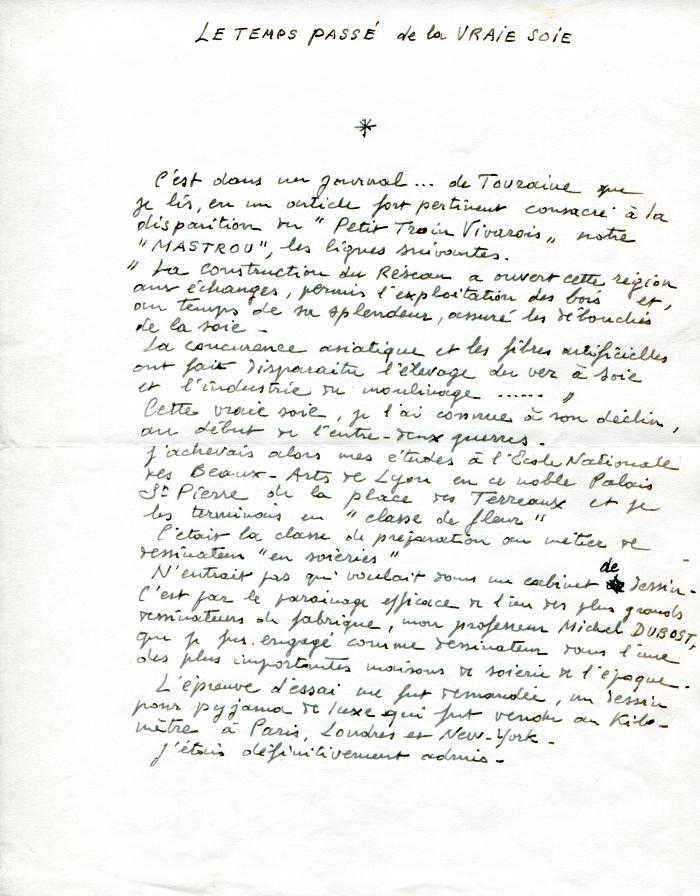 LE TEMPS PASSÉ de la VRAIE SOIE
*
C'est dans un journal... de Touraine que
je lis, en un article fort pertinent consacré à la
disparition du " Petit Train Vivarois „ notre
"MASTROU", les lignes suivantes.
" La construction du Réseau a ouvert cette région
aux échanges, permis l'exploitation des bois et,
au temps de sa splendeur, assuré les débouchés
de la soie -
La concurance asiatique et les fibres artificielles
ont fait disparaître l'élevage du ver à soie
et l'industrie du moulinage ...... „
Cette vraie soie, je l'ai connue à son déclin,
au début de l'entre-deux guerres.
J'achevais alors mes études à l'Ecole Nationale
des Beaux-Arts de Lyon en ce noble Palais
St Pierre de la place des Terreaux et je
les terminais en " classe de fleur "
C'était la classe de préparation au métier de
dessinateur "en soieries"
N'entrait pas qui voulait dans un cabinet de dessin -
C'est par le parainage efficace de l'un des plus grands
dessinateurs de fabrique, mon professeur Michel DUBOST,
que je fus engagé comme dessinateur dans l'une
des plus importantes maisons de soierie de l'époque.
L'épreuve d'essai me fut demandée, un dessin
pour pyjama de luxe qui fut vendu au Kilo-
mètre à Paris, Londres et New-York -
J'étais définitivement admis -